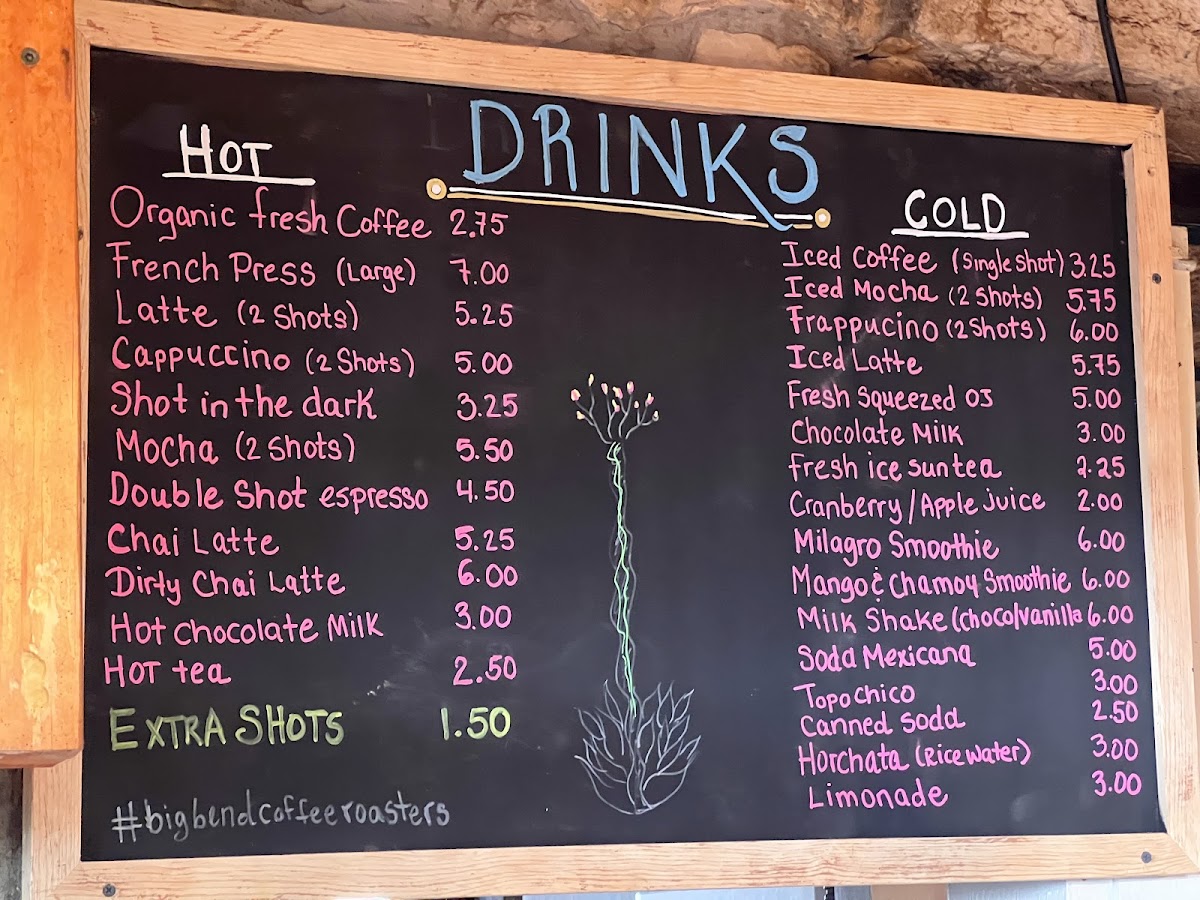 DRINKS
HOT
Organic fresh Coffee 2.75
French Press (Large) 7.00
Latte (2 Shots) 5.25
Cappuccino (2 Shots) 5.00
Shot in the dark 3.25
Mocha (2 Shots) 5.50
Double Shot espresso 4.50
Chai Latte 5.25
Dirty Chai Latte 6.00
Hot chocolate Milk 3.00
HOT tea 2.50
EXTRA SHOTS 1.50
#bigbendcoffeeroasters
COLD
Iced Coffee (Single Shot) 3.25
Iced Mocha (2 Shots) 5.75
Frappucino (2 Shots) 6.00
Iced Latte 5.75
Fresh Squeezed OJ 5.00
Chocolate Milk 3.00
Fresh ice sun tea 2.25
Cranberry/Apple juice 2.00
Milagro Smoothie 6.00
Mango & Chamoy Smoothie 6.00
Milk Shake (choco/vanilla 6.00
Soda Mexicana 5.00
Topochico 3.00
Canned soda 2.50
Horchata (Rice water) 3.00
Limonade 3.00